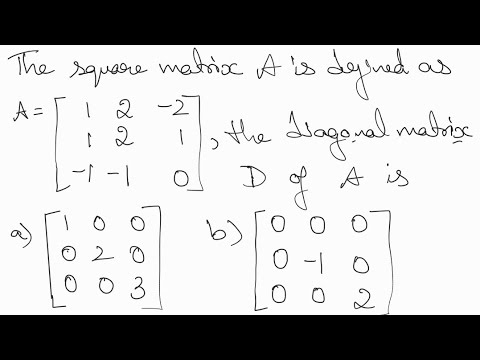 The square matrix A is defined as
A = [ 1 2 -2
1 2 1 , the diagonal matrix
-1 -1 0 ] D of A is
a) [ 1 0 0 b) [ 0 0 0
0 2 0 0 -1 0
0 0 3 ] 0 0 2 ]